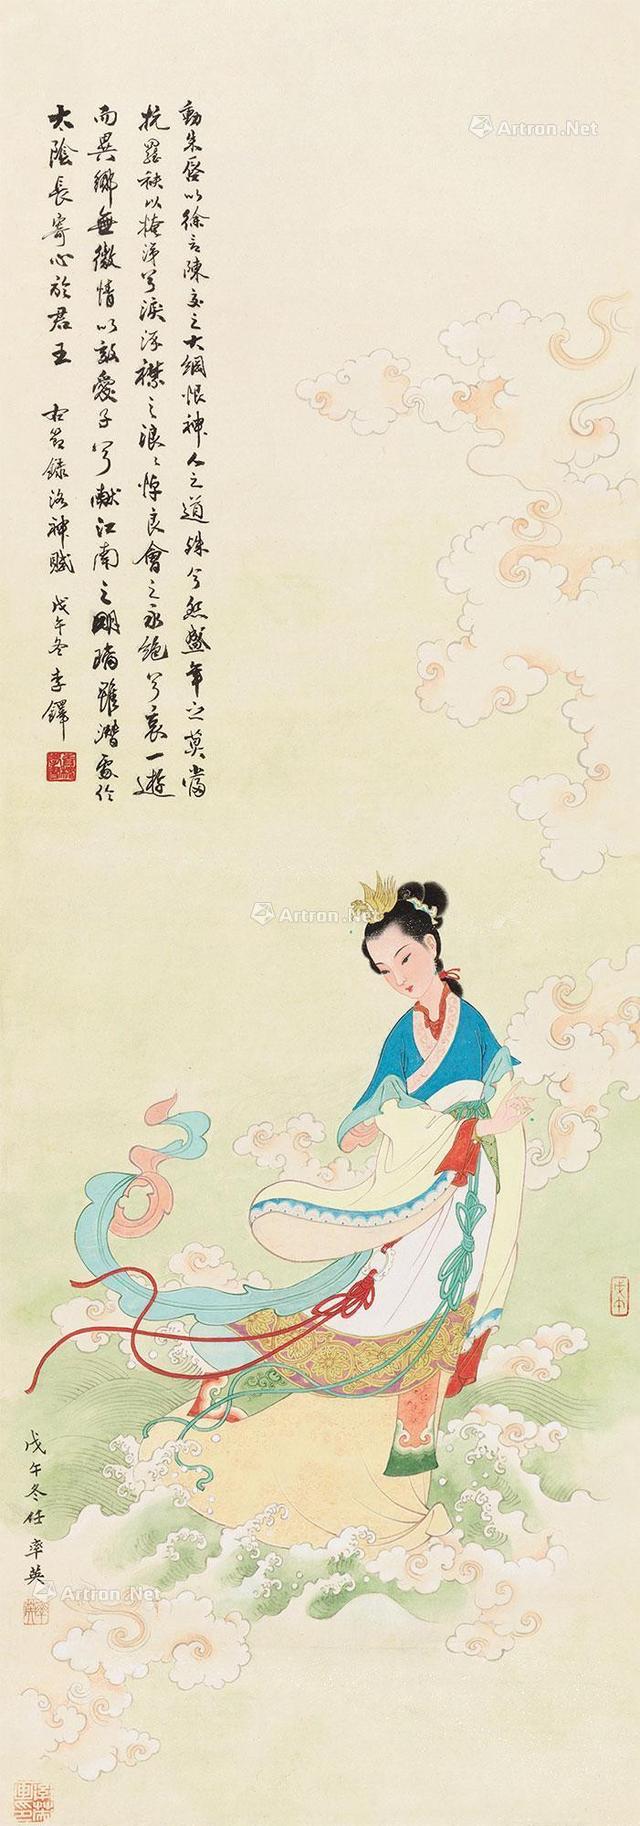 動朱唇以徐言陳交之大綱恨神人之道殊兮怨盛年之莫當
抗羅袂以掩涕兮淚流襟之浪〻悼良會之永絕兮哀一逝
而異鄉無微情以效愛子兮獻江南之明璫雖潛處於
太陰長寄心於君王 右節錄洛神賦 戊午冬李鐸
戊午冬任率英
戊午
Artron.Net
Artron.Net
Artron.Net